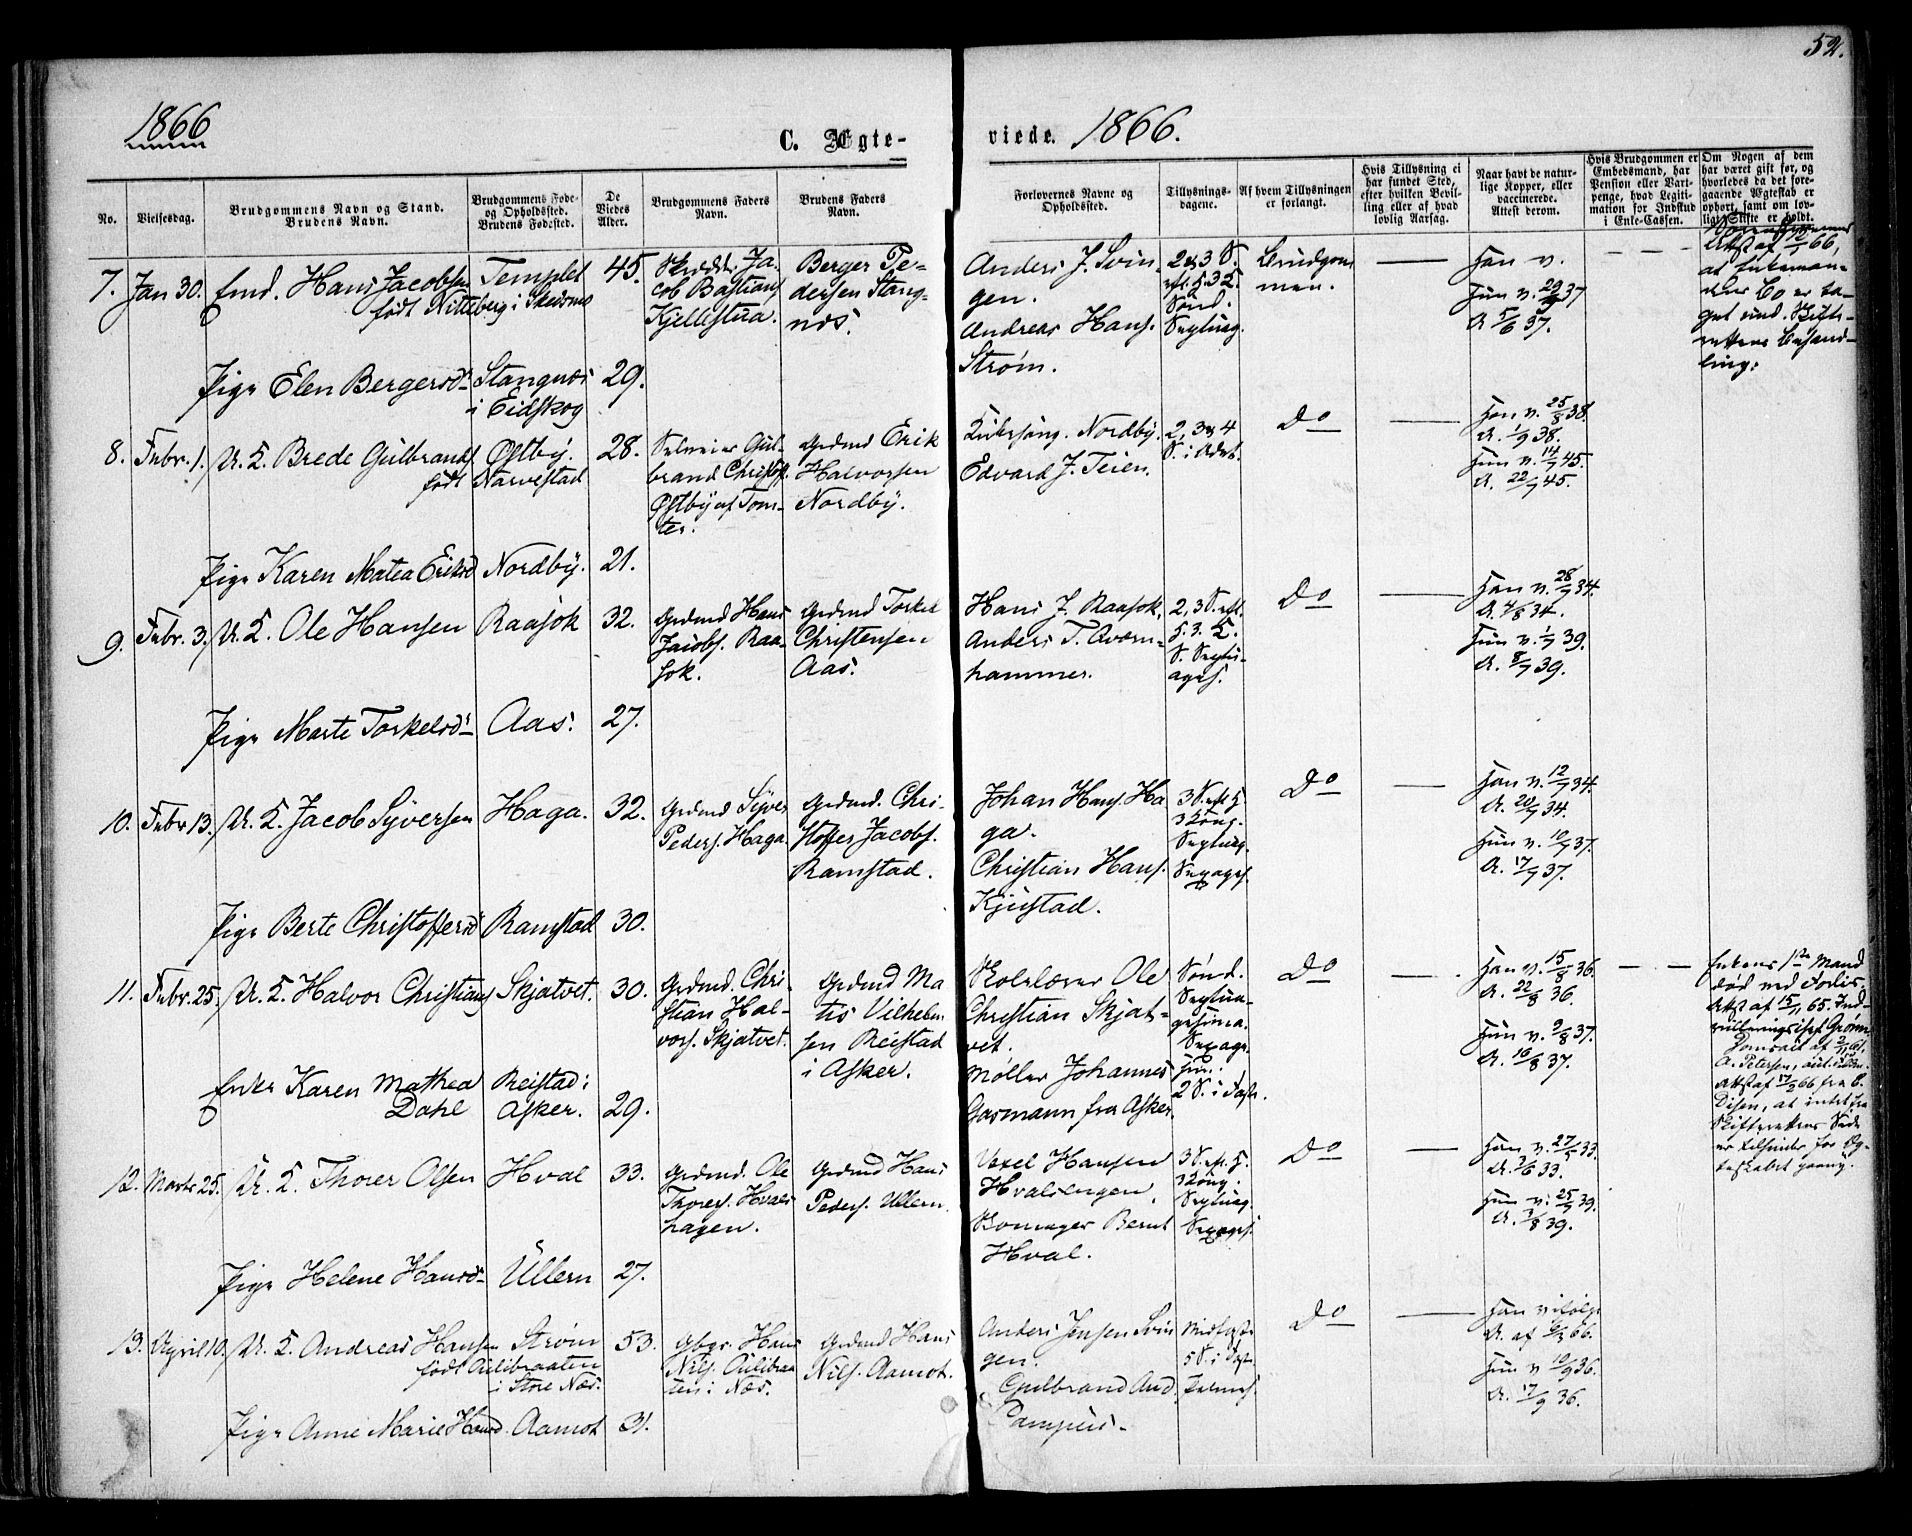 52.
1866
C. Ægte-
viede. 1866.
No.
Vielsesdag.
Brudgommens Navn og Stand.
Brudens Navn.
Brudgommens Føde-
og Opholdssted.
Brudens Fødested.
De
Viedes
Alder.
Brudgommens Faders
Navn.
Brudens Faders
Navn.
Forlovernes Navne og
Opholdssted.
Tillysnings-
dagene.
Af hvem Tillysningen
er forlangt.
Hvis Tillysning ei
har fundet Sted,
efter hvilken Bevil-
ling eller af hvad
lovlig Aarsag.
Naar havt de natur-
lige Kopper, eller
vaccinerede.
Attest derom.
Hvis Brudgommen er
Embedsmand, har
Pension eller Vart-
penge, hvad Legiti-
mation for Indskud
i Enke-Cassen.
Om Nogen af dem
har været gift før, og
hvorledes da det fore-
gaaende Ægteskab er
ophørt, samt om lov-
ligt Skifte er holdt.
7. Jan 30. Emd. Hans Jacobsen
født Nitteberg i Skedsmo
Templet
45.
Skrædder Ja-
cob Bastians
Kjellestua.
Berger Pe-
dersen Stang-
næs.
Anders J. Svin-
gen.
Andreas Hans.
Strøm.
2 & 3 S.
Septuag.
Brudgom
men.
Han v.
Hun v. 29/ 37
A 5/6 37.
Attst af 66,
at Enkeman-
dens Bo er ta-
get und. Skifte-
rettens Behand-
ling.
Pige Elen Bergersd.
Stangnæs
i Eidskog
29.
8. Febr. 1. U. K. Brede Gulbrands
født
Østby.
Narvestad
28.
Selveier Gul-
brand Christoff.
Østby af Tom-
ter.
Grdmd Erik
Halvorsen
Nordby.
Kirkesang. Nordby.
Edvard J. Teien.
2, 3 & 4
S. i Advt.
Do
Han v. 25/8 38.
A. 1/9 38.
Hun v. 14/7 45.
A. 22/7 45.
Pige Karen Matea Eriksd
Nordby.
21.
9. Febr. 3. U. K. Ole Hansen
Raasok
32.
Grdmd Hans
Jacobs. Raa-
sok.
Grdmd Torkel
Christensen
Aas.
Hans J. Raasok,
Anders T. Qværn-
hammer.
2, 3 S. eft.
S. Septu-
ages.
Do
Han v. 28/7 34.
A. 4/8 34.
Hun v. 1/7 39.
A. 8/7 39.
Pige Marte Torkelsd.
Aas.
27.
10. Febr 13. U. K. Jacob Syversen
Haga.
32.
Grdmd Syver
Peders. Haga
Grdmd. Chri-
stoffer Jacobs.
Ramstad.
Johan Hans. Ha
ga.
Christian Hans.
Kjustad.
3 S. eft. H.
3 Kong.
Septuag.
Sexages.
Do
Han v. 12/7 34.
A. 20/7 34.
Hun v. 10/7 37.
A. 17/7 37.
Pige Berte Christoffersd
Ramstad
30.
11. Febr. 25. U. K. Halvor Christians
Skjatvet.
30.
Grdmd. Chri-
stian Hal-
vors. Skjatvet.
Grdmd Ma
tis Vilhelm
sen Reistad
i Asker.
Skolelærer Ole
Christian Skjat-
vet.
Møller Johannes
Gasmann fra Asker.
Sønd.
Septua-
gesima.
Sexage-
sim.
2 S. i Faste.
Do
Han v. 15/8 36.
A. 22/8 36.
Hun v. 9/8 37.
A. 16/8 37.
Enkens 1ste Mand
død ved Forlis.
Attst af 15/11 65. Ind-
rulleringschef Grønn.
A. Petersen,
Attst af 17/2 66 fra C.
Disen, at intet fra
Skifterettens Side
er tilhinder for Æg-
teskabet
Enke Karen Mathea
Dahl
Reistad i
Asker.
29.
12. Marts 25. U. K. Thorer Olsen
Hval
33.
Grdmd. Ole
Thores. Hvals
hagen.
Grdmd Hans
Peders. Ullern.
Vexel Hansen
Hvalsengen.
Bonsager Bernt
Hval.
3 S. eft. H.
3 Kong.
Septuag.
Sexages.
Do
Han v. 27/5 33.
A. 3/6 33.
Hun v. 25/7 39.
A. 3/8 39.
Pige Helene Hansd.
Ullern
27.
13. April 10. U. K. Andreas Hansen
født Aulibraaten
i Store Næs.
Strøm
53.
Gbgr. Hans
Nils. Aulibraa
ten i Næs.
Grdmd Hans
Nils. Aamot.
Anders Jensen Svin
gen.
Gulbrand And.
Pampus.
Midfaste
5 S. i Faste
Palmes.
Do
Han v. ifølge
A. af 6/3 66.
Hun v 10/9 36.
A. 17/9 36.
Pige Anne Marie Hansd.
Aamot
31.